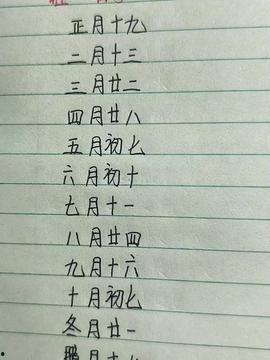 正月十九
二月十三
三月廿二
四月廿八
五月初七
六月初十
七月十一
八月廿四
九月十六
十月初七
冬月廿一
月十